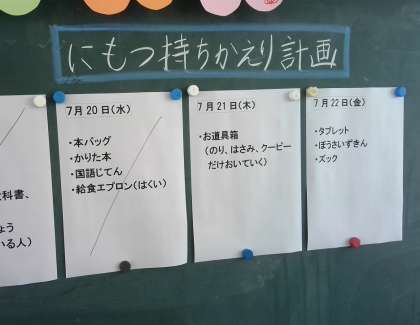 にもつ持ちかえり計画
科書、
ょう
いる人）
7月20日（水）
・本バッグ
・かりた本
・国語じてん
・給食エプロン（はくい）
7月21日（木）
・お道具箱
（のり、はさみ、クーピー
だけおいていく）
7月22日（金）
・タブレット
・ぼうさいずきん
・ズック